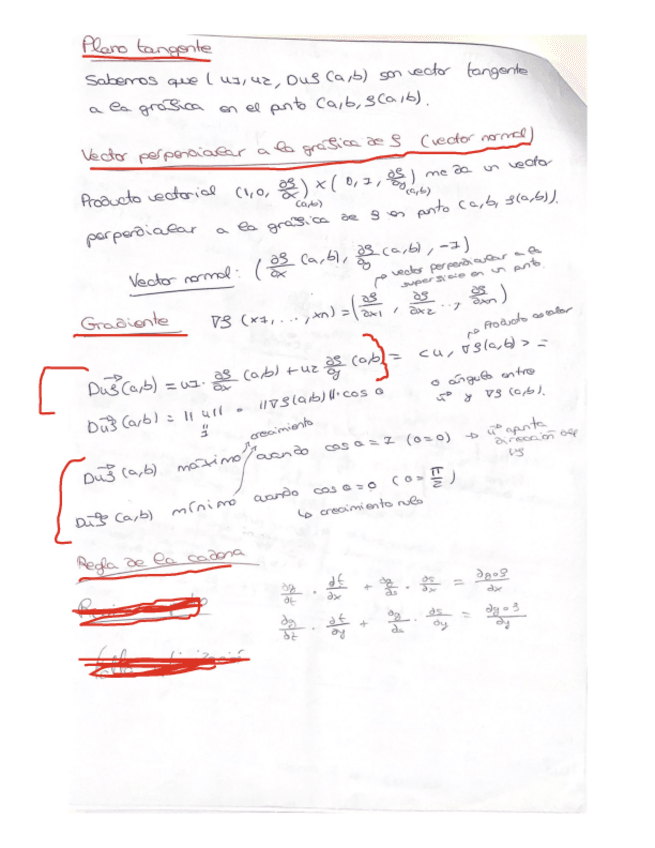 Plano tangente
Sabemos que (u1, u2, Duf(a,b) son vector tangente
a la gráfica en el pnto (a,b, f(a,b).
Vector perpendicular a la gráfica de f (vector normal)
Producto vectorial (1,0, ∂f/∂x (a,b)) × (0,1, ∂f/∂y (a,b)) me da un vector
perpendicular a la gráfica de f en pnto (a,b, f(a,b)).
Vector normal: (∂f/∂x (a,b), ∂f/∂y (a,b), -1)
↳ vector perpendicular a la
superficie en un pnto.
Gradiente ∇f (x1, ..., xn) = (∂f/∂x1, ∂f/∂x2 ..., ∂f/∂xn)
↳ Producto escalar
Duf(a,b) = u1 · ∂f/∂x (a,b) + u2 ∂f/∂y (a,b) = <u, ∇f(a,b)> =
Duf(a,b) = ||u|| · ||∇f(a,b)|| · cos θ
θ ángulo entre
u y ∇f (a,b).
" 1
crecimiento
Duf (a,b) máximo cuando cos θ = 1 (θ=0) → u apunta
dirección del
∇f
Duf (a,b) mínimo cuando cos θ = 0 (θ = π/2)
↳ crecimiento nulo
Regla de la cadena
∂g/∂t · ∂t/∂x + ∂g/∂s · ∂s/∂x = ∂g∘f/∂x
∂g/∂t · ∂t/∂y + ∂g/∂s · ∂s/∂y = ∂g∘f/∂y